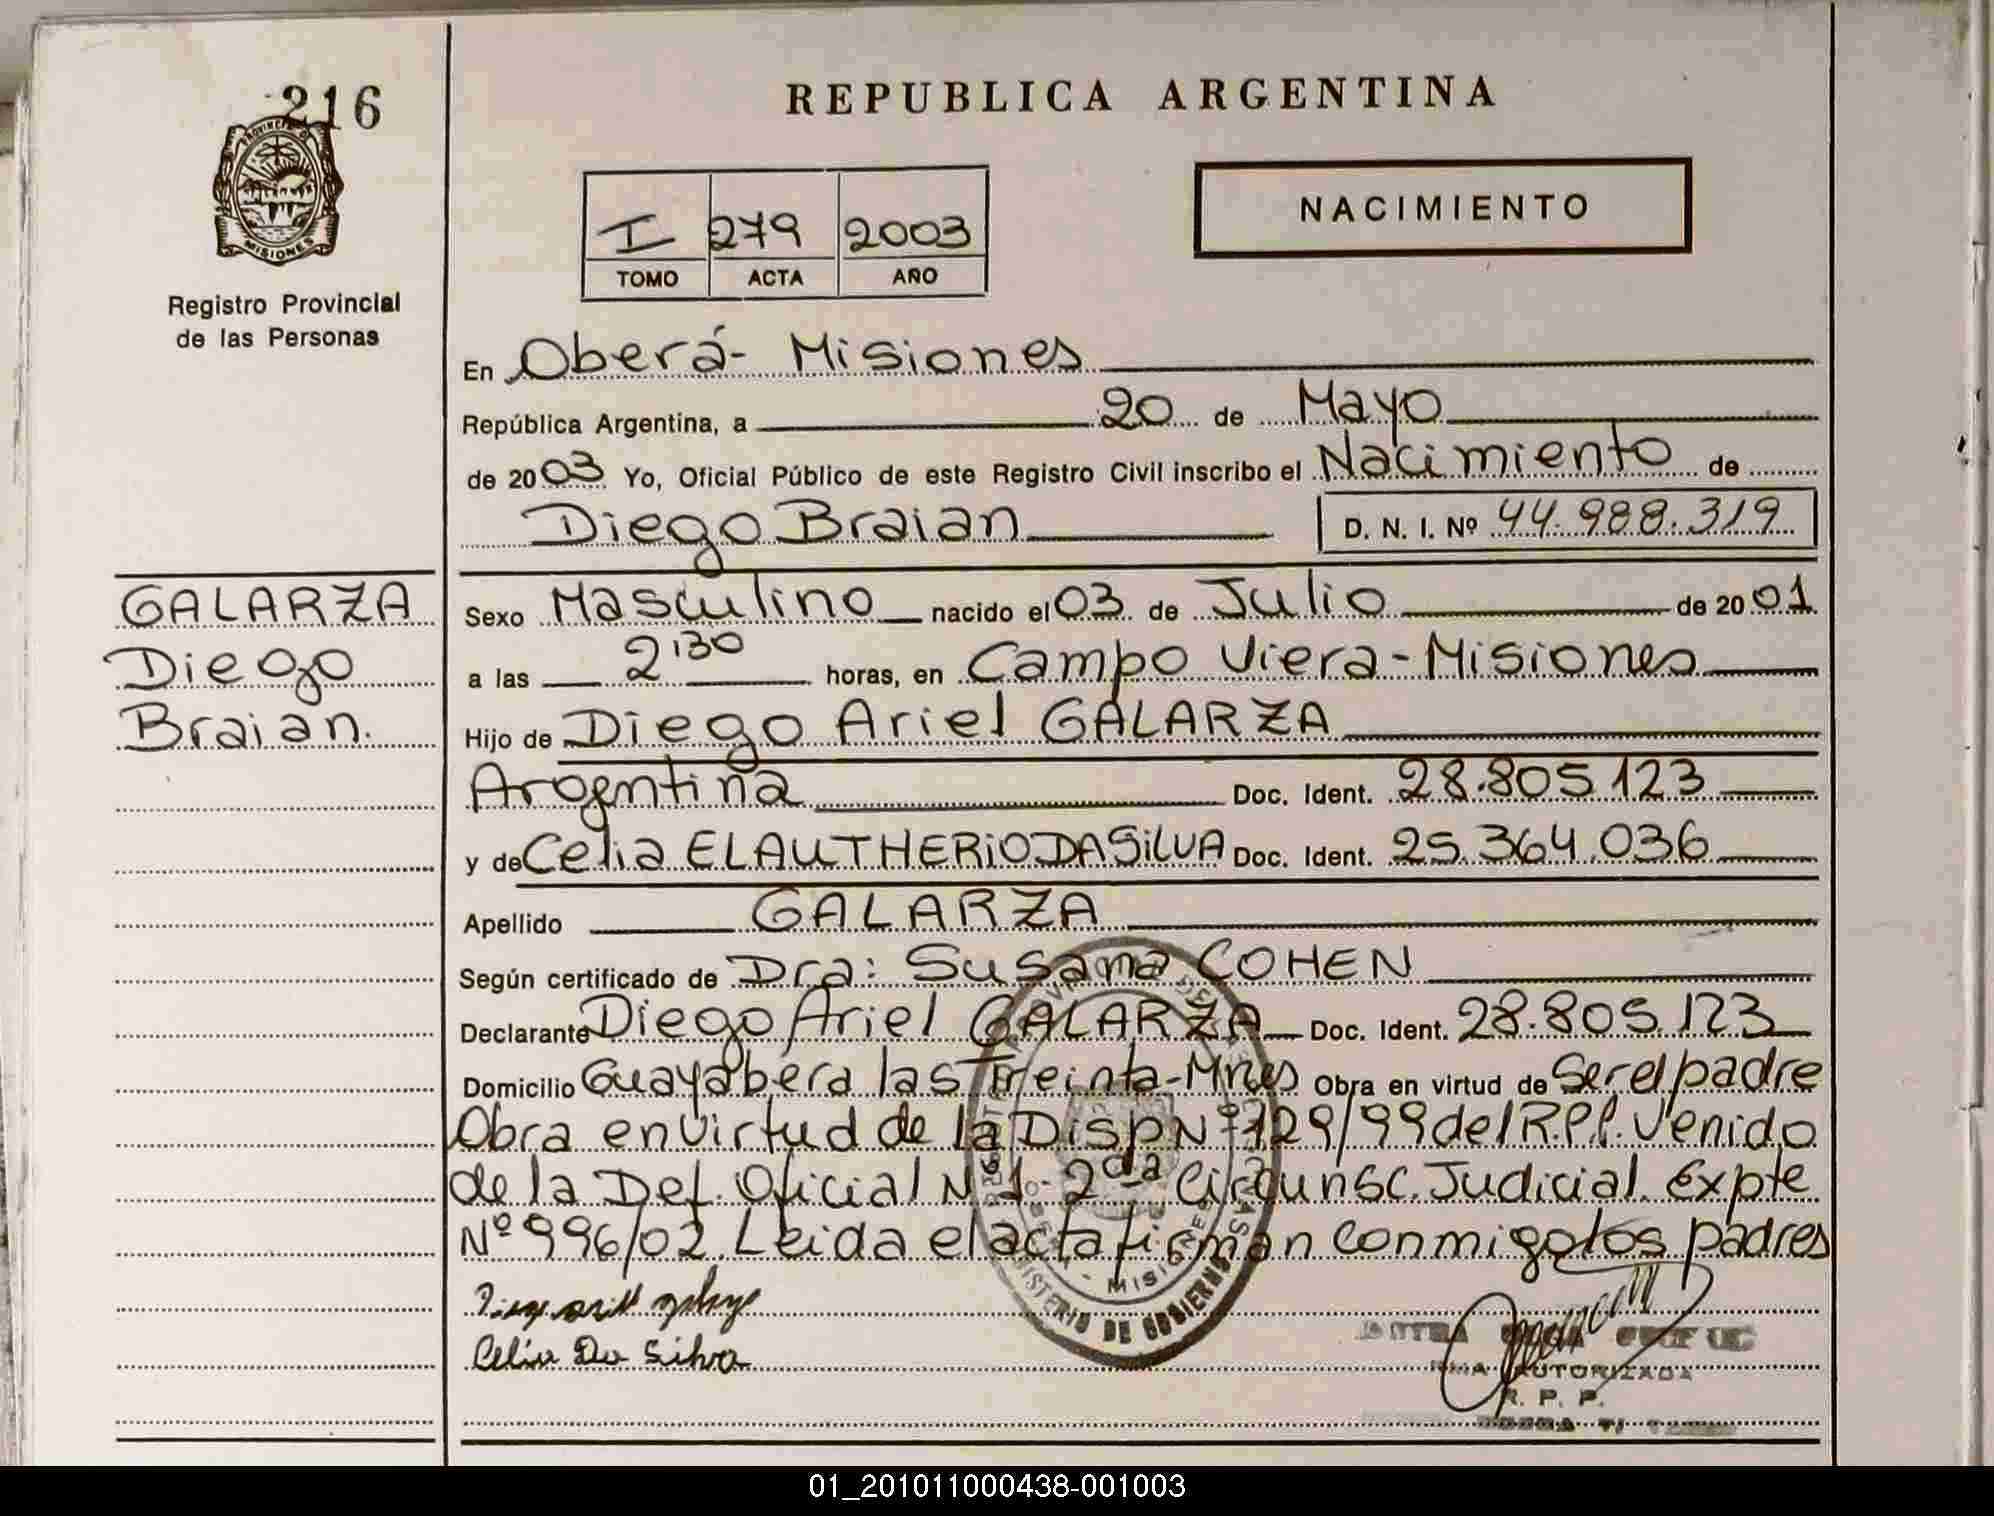 216
PROVINCIA DE
MISIONES
Registro Provincial
de las Personas
REPUBLICA ARGENTINA
I 279 2003
TOMO ACTA AÑO
NACIMIENTO
En Oberá- Misiones
República Argentina, a 20 de Mayo
de 2003 Yo, Oficial Público de este Registro Civil inscribo el Nacimiento de
Diego Braian D. N. I. Nº 44.988.319
GALARZA
Diego
Braian.
Sexo Masculino nacido el 03 de Julio de 2001
a las 2'30 horas, en Campo Viera-Misiones
Hijo de Diego Ariel GALARZA
Argentina Doc. Ident. 28.805.123
y de Celia ELAUTHERIO DA SILVA Doc. Ident. 25.364.036
Apellido GALARZA
Según certificado de Dra: Susana COHEN
Declarante Diego Ariel GALARZA Doc. Ident. 28.805.123
Domicilio Guayabera las Treinta-Mnes Obra en virtud de Ser el padre
Obra en virtud de la Disp Nº 729/99 del R.P.P. Venido
de la Def. Oficial N 1- 2da Circunsc. Judicial. Expte
Nº 996/02. Leida el acta firman conmigo los padres
Celia Da Silva
MINISTERIO DE GOBIERNO
MISIONES
FIRMA AUTORIZADA
R. P. P.
01_201011000438-001003